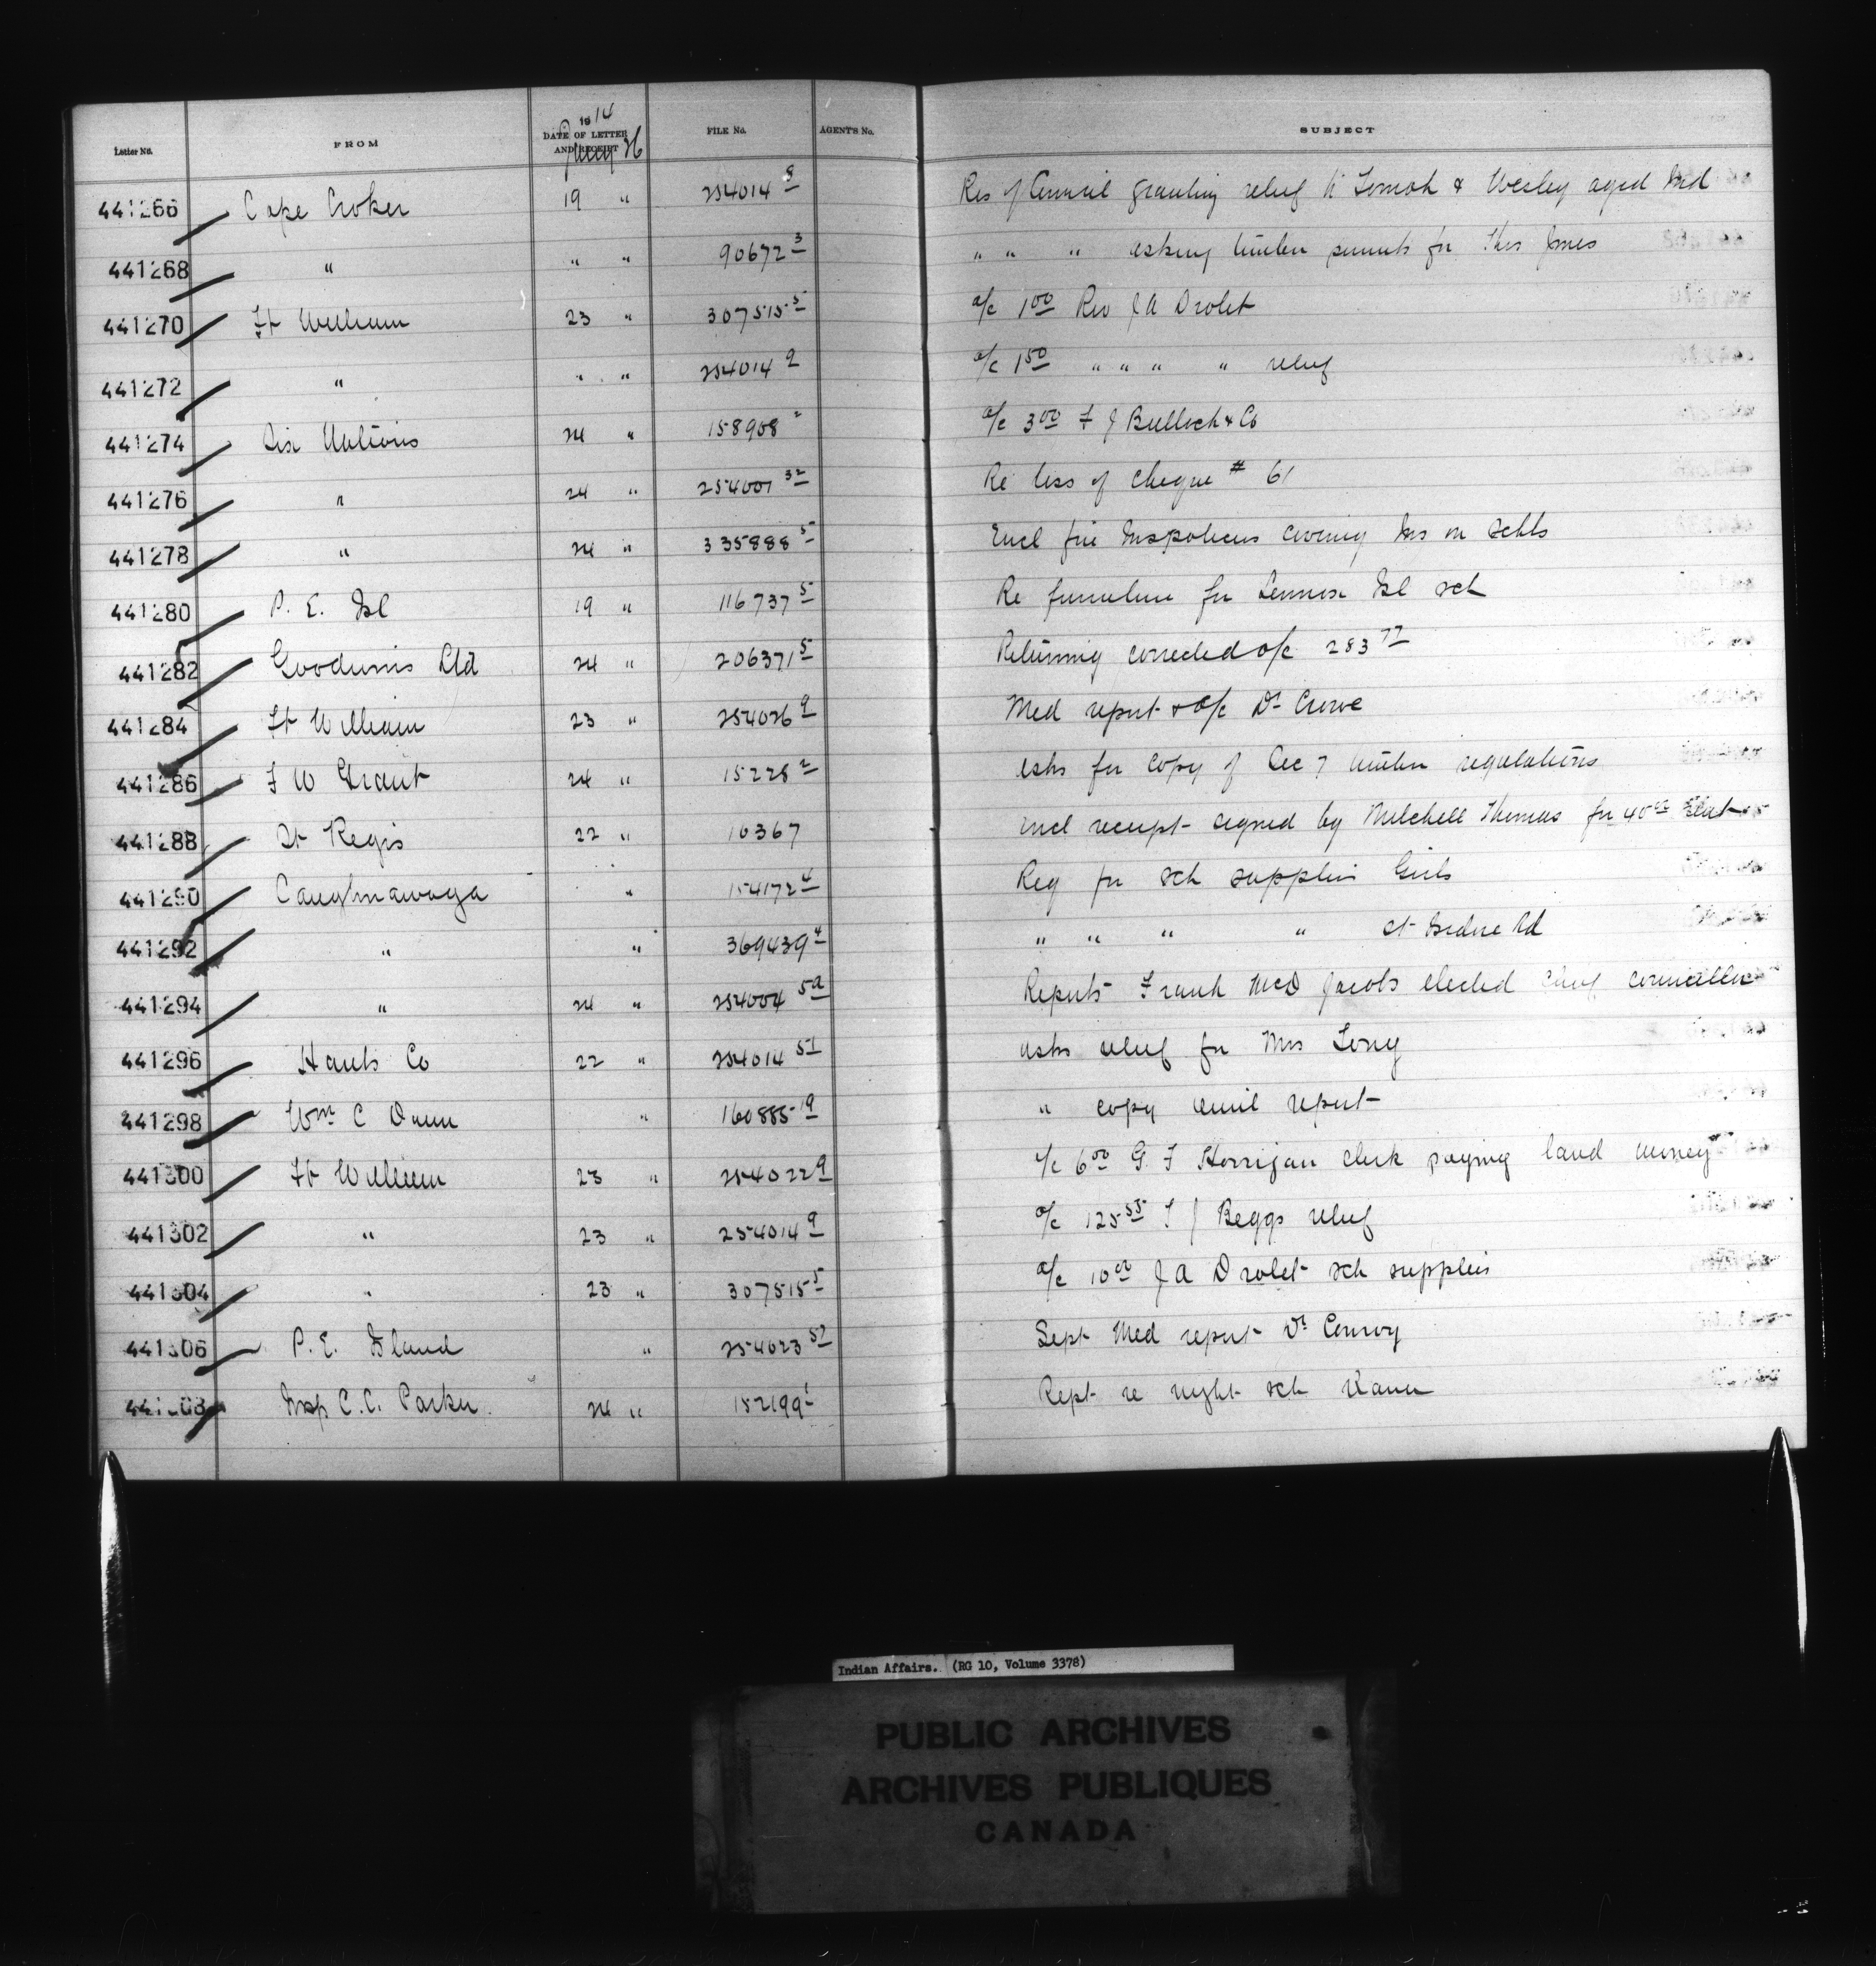 Letter No. FROM 1914 DATE OF LETTER AND RECEIPT Jany 26 FILE No. AGENT'S No. SUBJECT
441266 Cape Croker 19 " 254014 8 Res of Council granting relief to Tomah & Wesley aged Ind
441268 " " " 90672 3 " " " asking timber permits for Thos Jones
441270 Ft William 23 " 307515 5 a/c 1 00 Rev J A Drolet
441272 " " " 254014 9 a/c 1 50 " " " " relief
441274 Six Nations 24 " 158908 2 a/c 3 00 F J Bulloch & Co
441276 " 24 " 254001 32 Re loss of cheque # 61
441278 " 24 " 335888 5 Encl fire Ins policies covering Ins on schls
441280 P. E. Isl 19 " 116737 5 Re furniture for Lennox Isl sch
441282 Goodwins Ltd 24 " 206371 5 Returning corrected a/c 283 77
441284 Ft William 23 " 254026 9 Med report & a/c Dr Crowe
441286 F W Grant 24 " 15228 2 asks for copy of Sec 7 timber regulations
441288 St Regis 22 " 10367 Encl receipt signed by Mitchell Thomas for 40 00
441290 Caughnawaga " 154172 4 Req for sch supplies Girls
441292 " " 369439 4 " " " " St Isidore Rd
441294 " 24 " 254004 5a Reports Frank McD Jacobs elected Chief councillor
441296 Hants Co 22 " 254014 51 asks relief for Mrs Tony
441298 Wm C Dunn " 160885 19 " copy annual report
441300 Ft William 23 " 254022 9 a/c 6 00 G. F Horrigan clerk paying land money
441302 " 23 " 254014 9 a/c 125 55 T J Beggs relief
441304 " 23 " 307515 5 a/c 10 00 J A Drolet sch supplies
441306 P. E. Island " 254023 52 Sept Med report Dr Conroy
441308 Insp C. C. Parker. 24 " 152199 1 Rept re night sch
Indian Affairs. (RG 10, Volume 3378)
PUBLIC ARCHIVES
ARCHIVES PUBLIQUES
CANADA